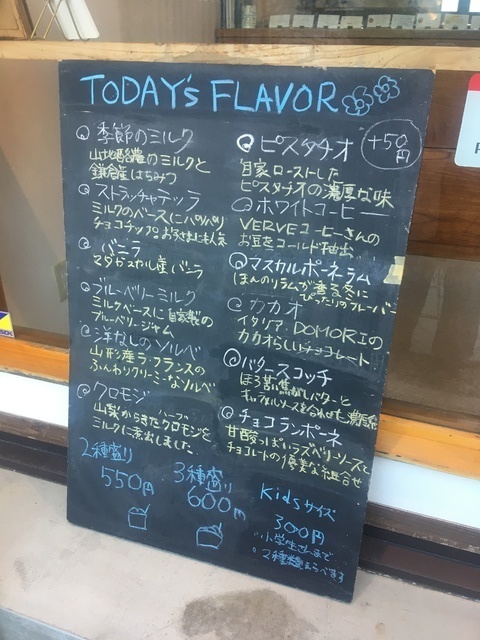 TODAY's FLAVOR
季節のミルク
山地酪農のミルクと
鎌倉産はちみつ
ストラッチャテッラ
ミルクのベースにパリパリ
チョコチップ♪ お子さまに人気
バニラ
マダガスカル産バニラ
ブルーベリーミルク
ミルクベースに自家製の
ブルーベリージャム
洋なしのソルベ
山形産ラ・フランスの
ふんわりクリーミーなソルベ
クロモジ
山梨からきたクロモジを
ハーブ
ミルクに煮出しました
ピスタチオ
+50円
自家ローストした
ピスタチオの濃厚な味
ホワイトコーヒー
VERVEコーヒーさんの
お豆をコールド抽出
マスカルポーネラム
ほんのりラムが香る冬に
ぴったりのフレーバー
カカオ
イタリア DOMORIの
カカオらしいチョコレート
バタースコッチ
ほろ苦い焦がしバターと
チョコランポーネ
甘酸っぱいラズベリーソースと
チョコレートの優美な組合せ
2種盛り
550円
3種盛り
600円
Kidsサイズ
300円
小学生さんまで
2種類えらべます